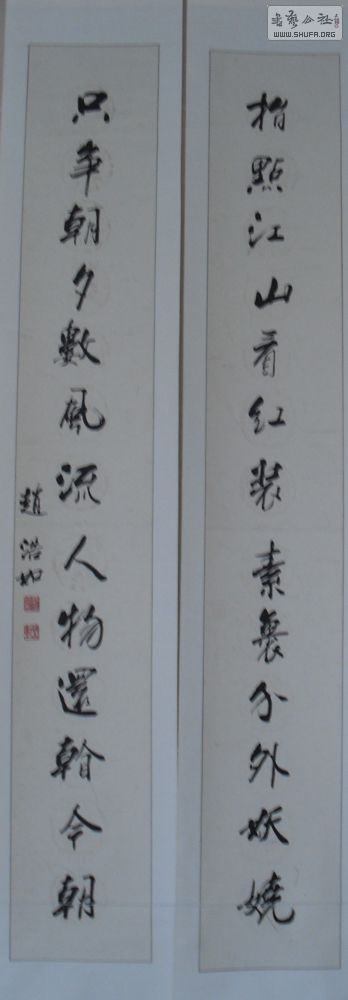 指點江山看红裝素裹分外妖嬈
只争朝夕數風流人物還翰今朝
趙浩如
書藝公社
WWW.SHUFA.ORG